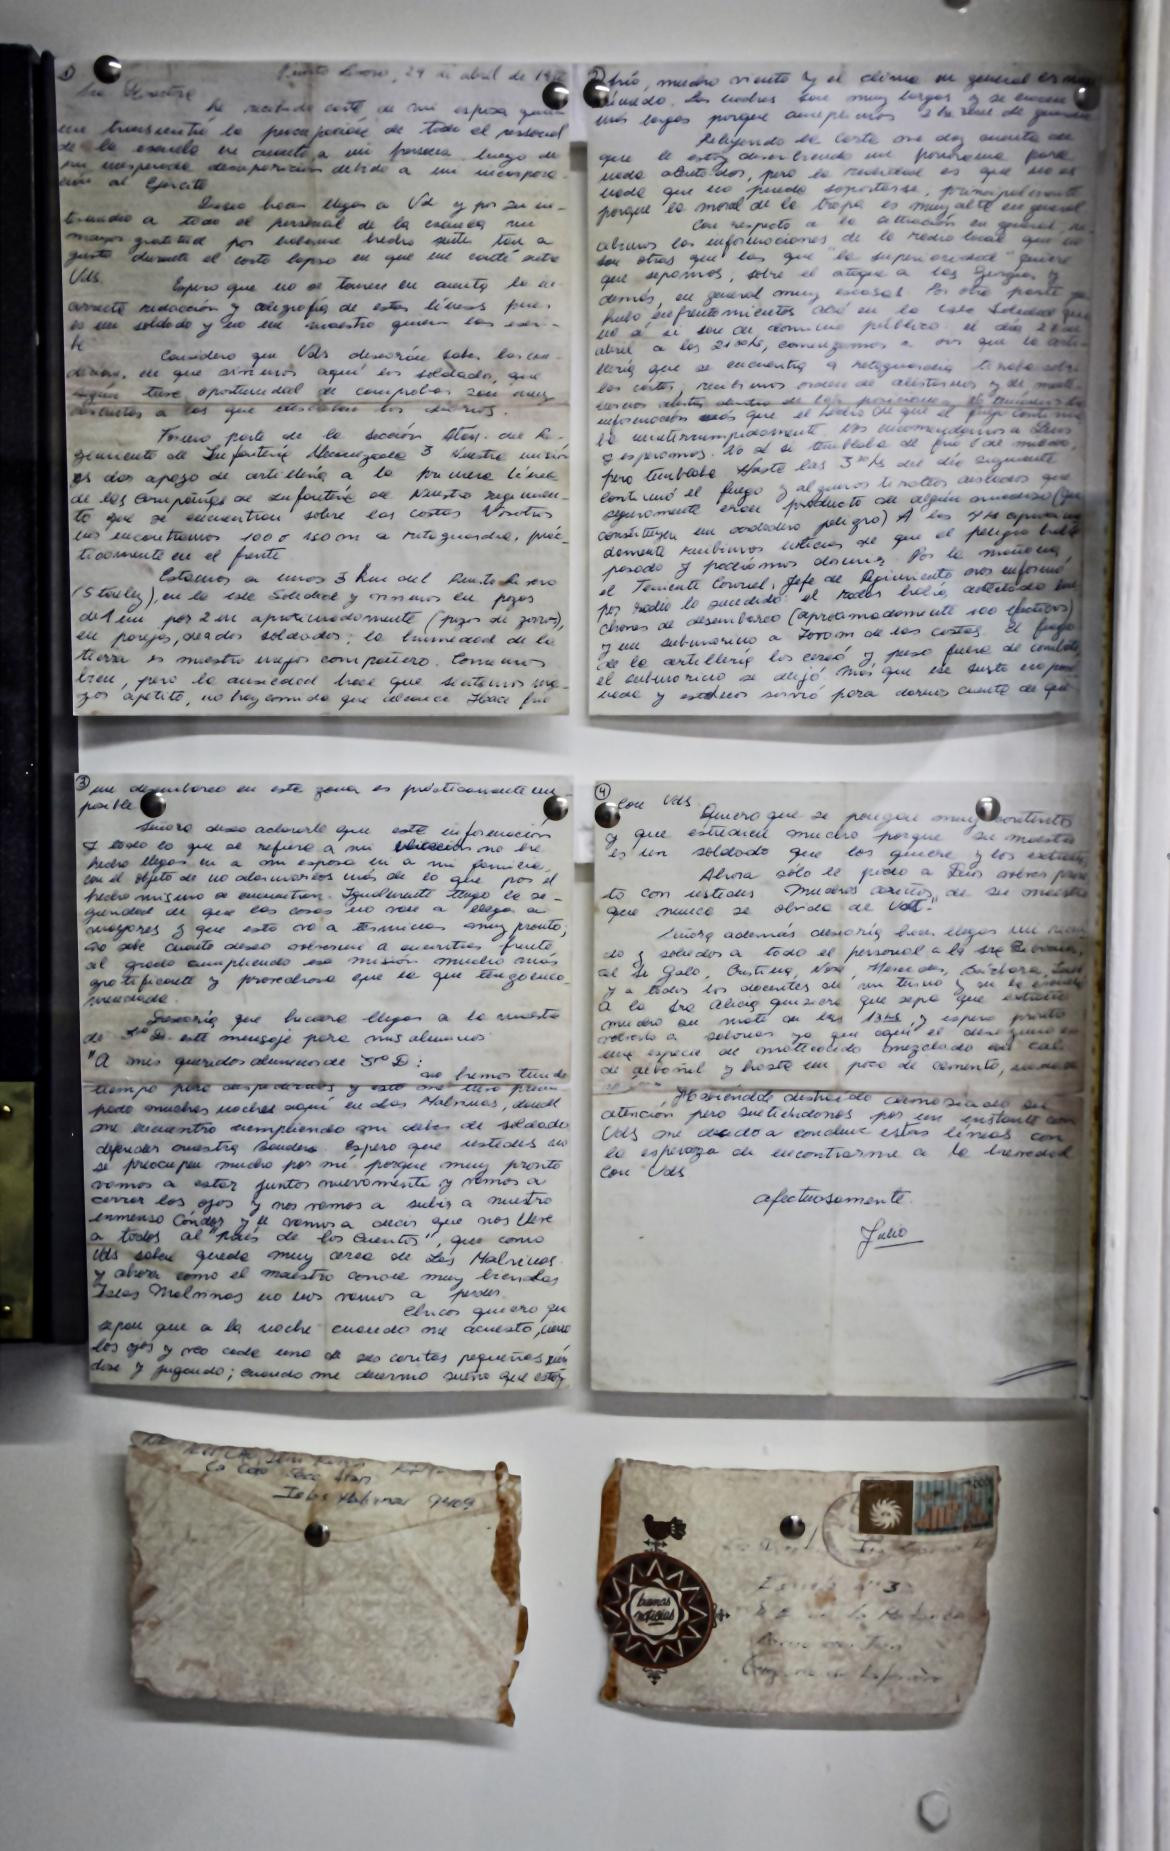 Puerto Rivero, 29 de abril de 19
He recibido carta de mi esposa quien
me transmitió la preocupación de todo el personal
de la escuela en cuanto a mi persona luego de
mi inesperada desaparición debido a mi incorpora-
ción al Ejército
Deseo hacer llegar a Vd y por su in-
termedio a todo el personal de la escuela mi
mayor gratitud por haberme hecho sentir tan a
gusto durante el corto lapso en que me conté entre
Vds.
Espero que no se tomen en cuenta la in-
correcta redacción y caligrafía de estas líneas pues
es un soldado y no un maestro quien las escri-
be
Considero que Vds desearán saber las con-
diciones en que vivimos aquí los soldados, que
según tuve oportunidad de comprobar son muy
distintas a las que describen los diarios.
Formo parte de la sección del Re-
gimiento de Infantería Mecanizada 3 Nuestra misión
es dar apoyo de artillería a la primera línea
de las Compañías de Infantería de Nuestro regimien-
to que se encuentran sobre las costas Nosotros
nos encontramos 100 o 150 m a retaguardia, prác-
ticamente en el frente
Estamos a unos 3 Km del Puerto Rivero
(Stanley), en la isla Soledad y vivimos en pozos
de 1 m por 2 m aproximadamente (pozos de zorros),
en parejas, de a dos soldados; la humedad de la
tierra es nuestra mejor compañera. Comemos
bien, pero la ansiedad hace que sintamos ma-
yor apetito, no hay comida que alcance Hace frío
frío, mucho viento y el clima en general es muy
húmedo. Las noches son muy largas y se hacen
más largas porque cumplimos 2 hs de guardia
Releyendo la carta me doy cuenta de
que le estoy describiendo un panorama para
nada alentador, pero la realidad es que no es
nada que no pueda soportarse, principalmente
porque la moral de la tropa es muy alta en general
Con respecto a la situación en general, re-
cibimos las informaciones de la radio local que no
son otras que las que "la superioridad" quiere
que sepamos, sobre el ataque a las Georgias y
demás, en general muy escasas. Por otra parte ya
hubo enfrentamientos acá en la isla Soledad que
no sé si son de dominio público. el día 28 de
abril a las 21 hs, comenzamos a oir que la arti-
llería que se encuentra a retaguardia tiraba sobre
las costas, recibimos orden de alistarnos y de mante-
nernos alertas dentro de las posiciones
información más que el hecho de que el fuego continuaba
ininterrumpidamente Nos encomendamos a Dios
y esperamos. No sé si temblaba de frío o de miedo,
pero temblaba Hasta las 3 hs del día siguiente
continuó el fuego y algunos tiroteos aislados que
seguramente eran producto de algún
constituyen un verdadero peligro) A las 4 hs aproxima-
damente recibimos noticias de que el peligro había
pasado y podíamos dormir. Por la mañana,
el Teniente Coronel, Jefe de Regimiento nos informó
por radio lo sucedido: el radar había detectado lan-
chones de desembarco (aproximadamente 100 efectivos)
y un submarino a 7000 m de las costas. El fuego
de la artillería los cercó y puso fuera de combate,
el submarino se alejó. Más que ese susto no pasó
nada y esto nos sirvió para darnos cuenta de que
③ un desembarco en esta zona es prácticamente im-
posible
Señora deseo aclararle que esta información
y todo lo que se refiere a mi ubicación no he
hecho llegar ni a mi esposa ni a mi familia
con el objeto de no alarmarlos más de lo que por el
hecho mismo se encuentran. Igualmente tengo la se-
guridad de que las cosas no van a llegar a
mayores y que esto va a terminar muy pronto;
no sabe cuanto deseo volver a encontrarme frente
al grado cumpliendo esa misión mucho más
gratificante y provechosa que la que tengo enco-
mendada.
Desearía que hiciera llegar a la maestra
de 3ro D. este mensaje para mis alumnos
"A mis queridos alumnos de 3ro D:
no hemos tenido
tiempo para despedirnos y esto me tuvo preocu-
pado muchas noches aquí en las Malvinas, donde
me encuentro cumpliendo mi deber de soldado
defender nuestra Bandera. Espero que ustedes no
se preocupen mucho por mi porque muy pronto
vamos a estar juntos nuevamente y vamos a
cerrar los ojos y nos vamos a subir a nuestro
inmenso Cóndor y le vamos a decir que nos lleve
a todos al "País de los Cuentos", que como
Uds saben queda muy cerca de Las Malvinas.
y ahora como el maestro conoce muy bien las
Islas Malvinas no nos vamos a perder.
Chicos quiero que
sepan que a la noche cuando me acuesto, cierro
los ojos y veo cada una de sus caritas pequeñas rién-
dose y jugando; cuando me duermo sueño que estoy
④ con Vds.
Quiero que se pongan muy contentos
y que estudien mucho porque su maestro
es un soldado que los quiere y los extraña
Ahora sólo le pido a Dios volver pron-
to con ustedes. Muchos cariños de su maestro
que nunca se olvida de Uds."
Señora además desearía hacer llegar mi recuer-
do y saludos a todo el personal a la sra
al Sr Galo, Cristina, Nora, Mercedes, Bárbara,
y a todos los docentes de mi turno y de la escuela
A la Sra Alicia quisiera que sepa que extraño
mucho su mate de las 13 hs y espero pronto
volverlo a saborear ya que aquí el desayuno es
una especie de mate cocido mezclado con cal
de albañil y hasta un poco de cemento,
Habiéndole distraído demasiado su
atención pero sintiéndonos por un instante con
Vds me decido a concluir estas líneas con
la esperanza de encontrarme a la brevedad
con Vds
afectuosamente.
Julio
Islas Malvinas 9409
buenas
noticias
Escuela Nº 3